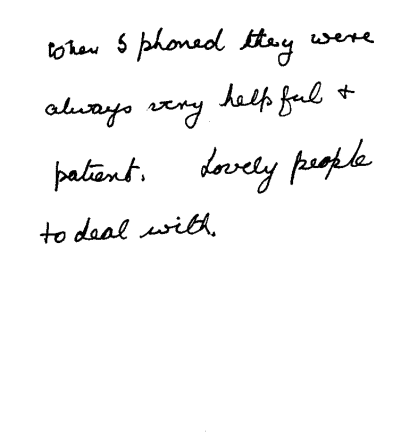 When I phoned they were
always very helpful +
patient. Lovely people
to deal with.